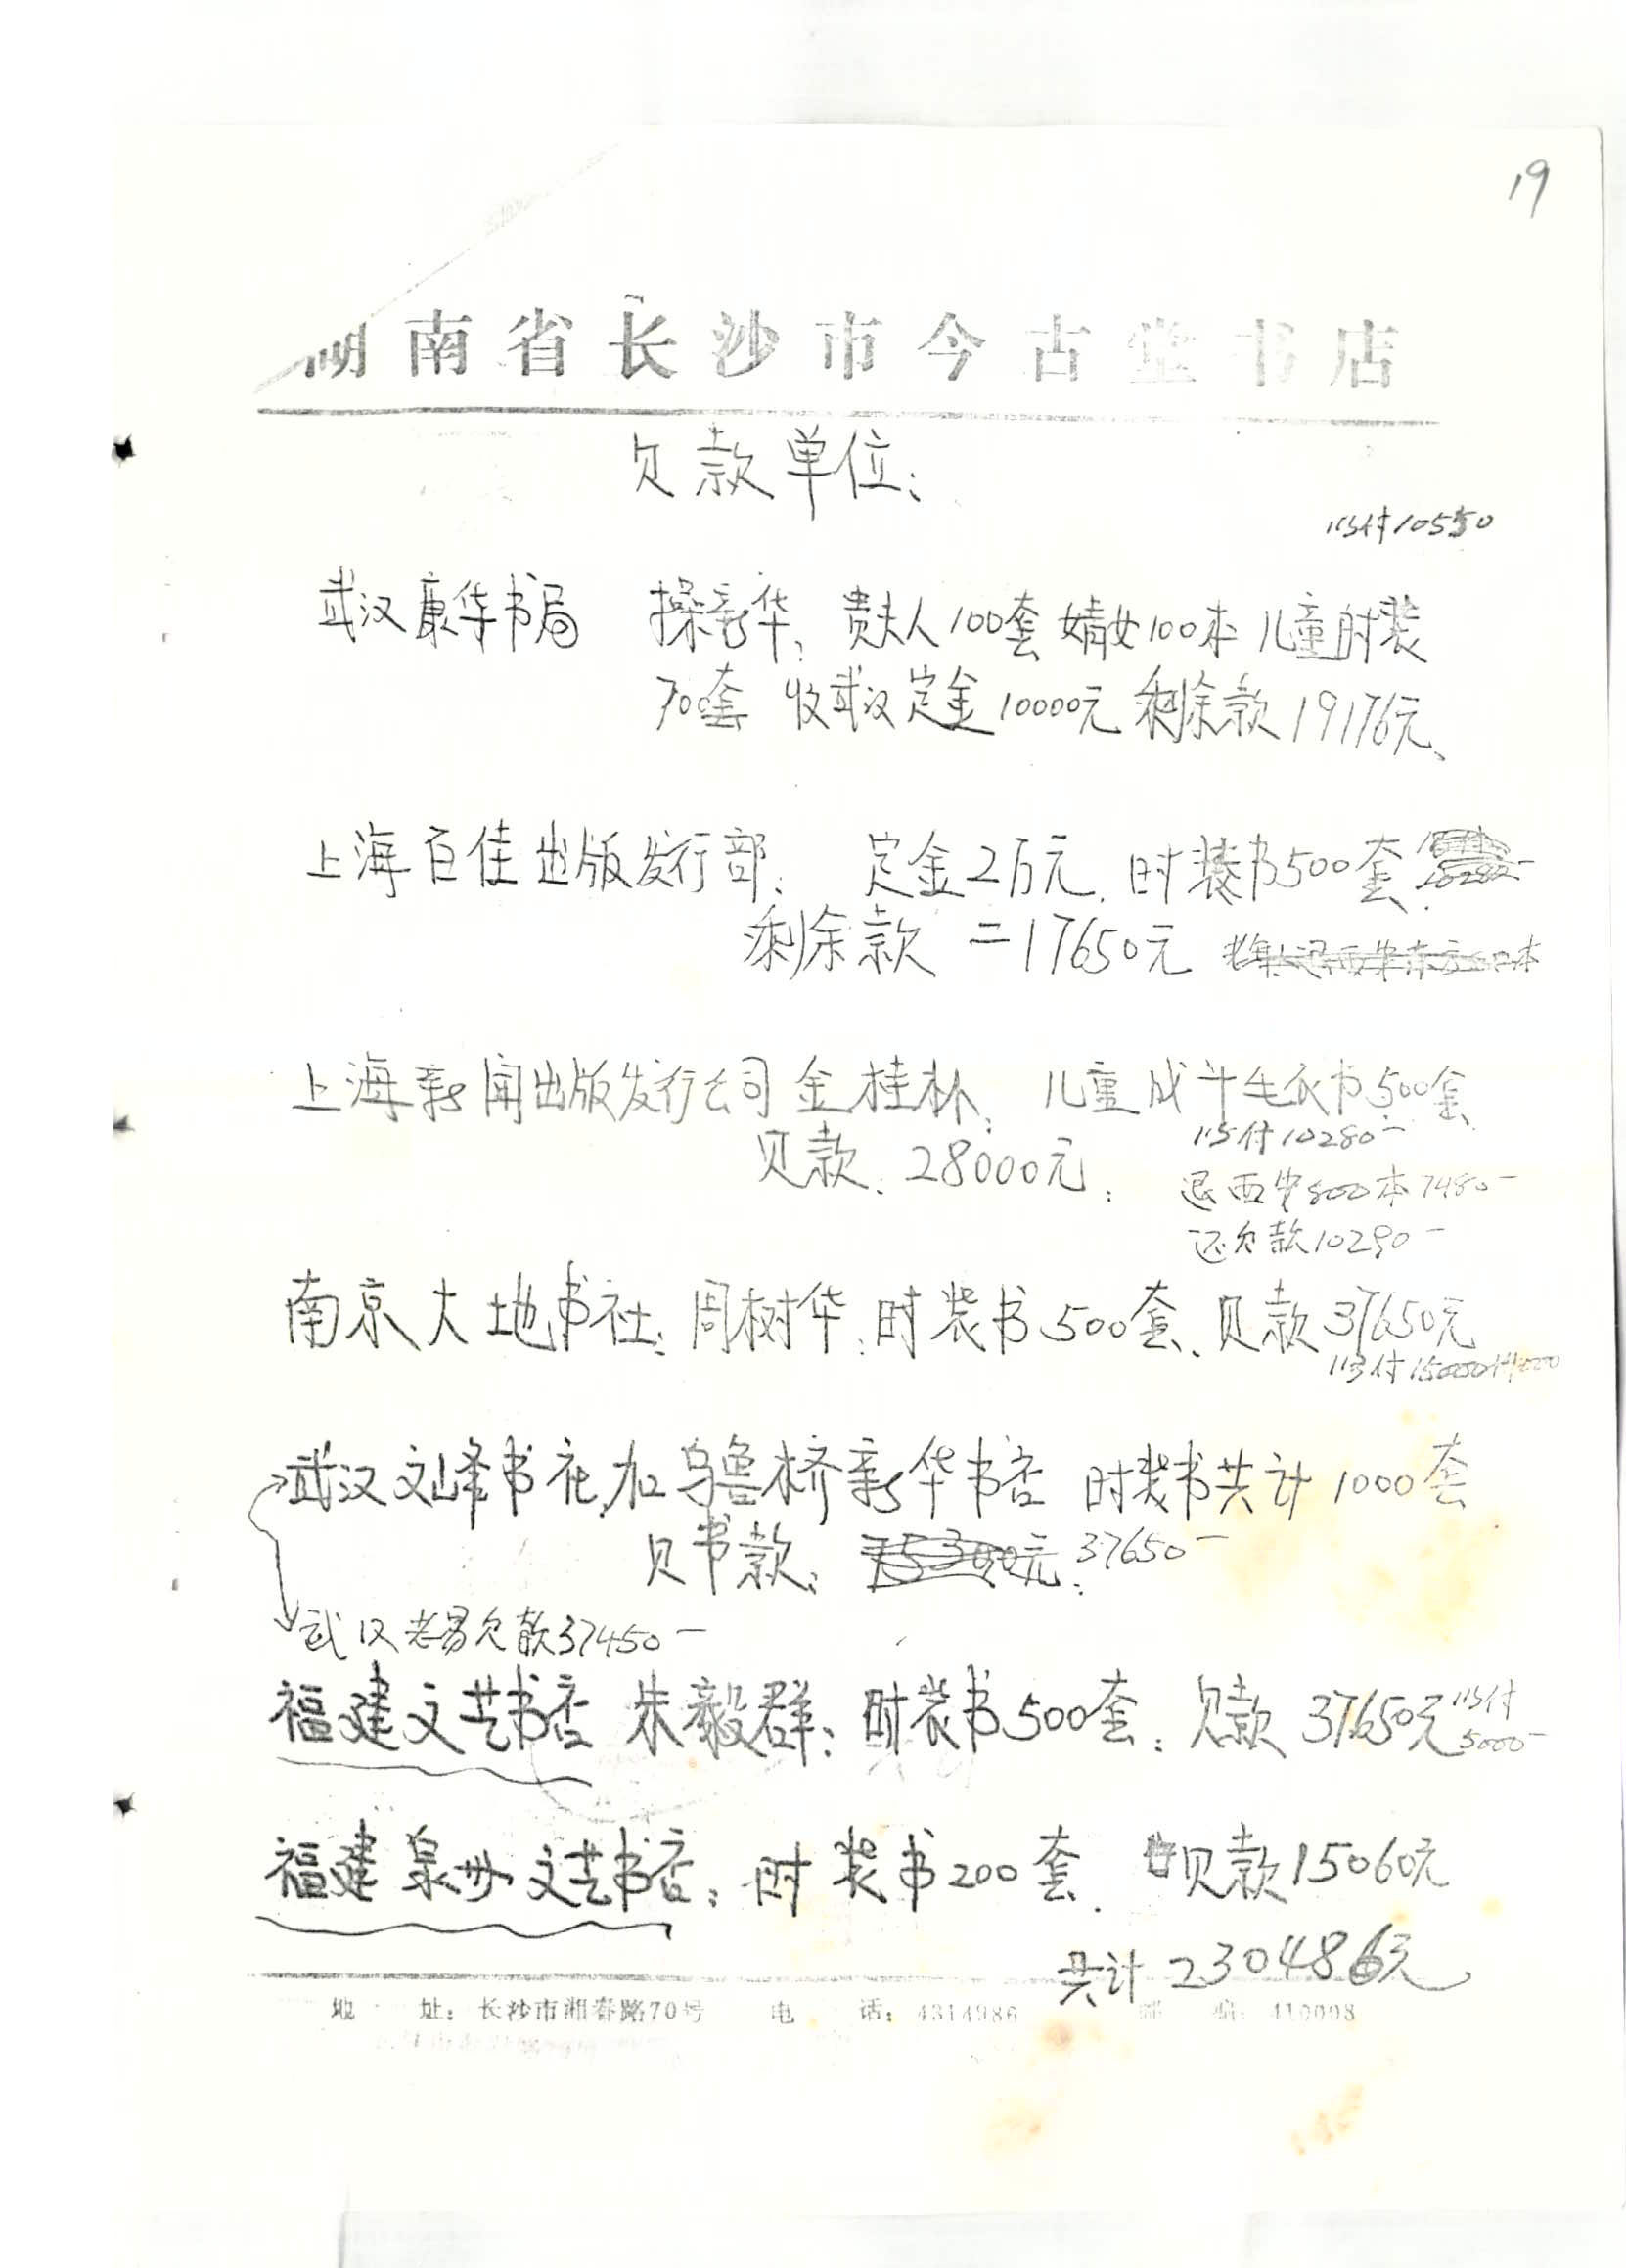 19
湖南省长沙市今古堂书店
欠款单位:
113付10550
武汉康华书局 操新华、贵夫人100套 婧女100本 儿童时装
70套 收武汉定金10000元 剩余款19176元、
上海百佳出版发行部: 定金2万元. 时装书500套
剩余款 =17650元
上海新闻出版发行公司 金桂林: 儿童成斗毛衣书500套
欠款: 28000元:
115付10280-
退西安800本7480-
还欠款10290-
南京大地书社: 周树华: 时装书500套、欠款37650元
113付15000
武汉文峰书社,加乌鲁桥新华书店 时装书共计1000套
欠书款: 75300元: 37650-
武汉老易欠款37450-
福建文艺书店 朱毅群: 时装书500套: 欠款37650元 113付
5000-
福建泉州文艺书店: 时装书200套. 欠款15060元
共计230486元
地 址: 长沙市湘春路70号 电 话: 4314986 邮 编: 410008